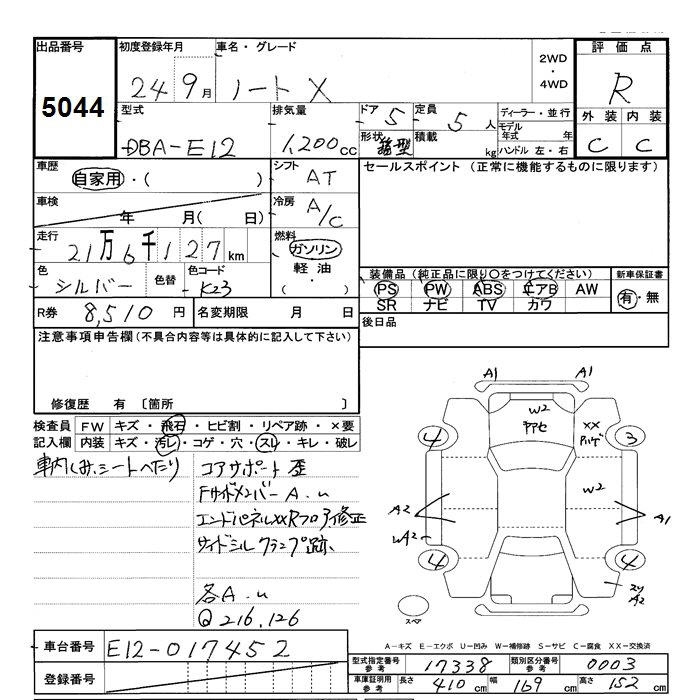 出品番号
5044
初度登録年月
24 9月
車名・グレード
ノート X
2WD
・
4WD
評価点
R
外装 内装
C C
型式
DBA-E12
排気量
1,200cc
ドア 5
形状 箱型
定員 5人
積載 kg
ディーラー・並行
モデル年式 年
ハンドル 左・右
車歴
自家用・( )
シフト
AT
セールスポイント (正常に機能するものに限ります)
車検
年 月( 日)
冷房
A/C
走行
21万6千127km
燃料
ガソリン
軽油
( )
色
シルバー
色替
色コード
K23
装備品(純正品に限り○をつけてください)
PS PW ABS エアB AW
SR ナビ TV カワ
新車保証書
有・無
R券 8,510円
名変期限 月 日
後日品
注意事項申告欄(不具合内容等は具体的に記入して下さい)
修復歴 有 〔箇所 〕
検査員
記入欄
FW キズ・飛石・ヒビ割・リペア跡・×要
内装 キズ・汚レ・コゲ・穴・スレ・キレ・破レ
車内しみ、シートへたり
コアサポート歪
FサイドメンバーA.u
エンドパネルXXRフロア修正
サイドシルクランプ跡
各A.u
Q216,126
A1 A1
W2
XX
4 3
W2
A2 A1
WA2
4 4
A2
スペア
A-キズ E-エクボ U-凹み W-補修跡 S-サビ C-腐食 XX-交換済
車台番号 E12-017452
登録番号
型式指定番号 参考 17338
類別区分番号 参考 0003
車庫証明用 参考 長さ 410cm 幅 169cm 高さ 152cm